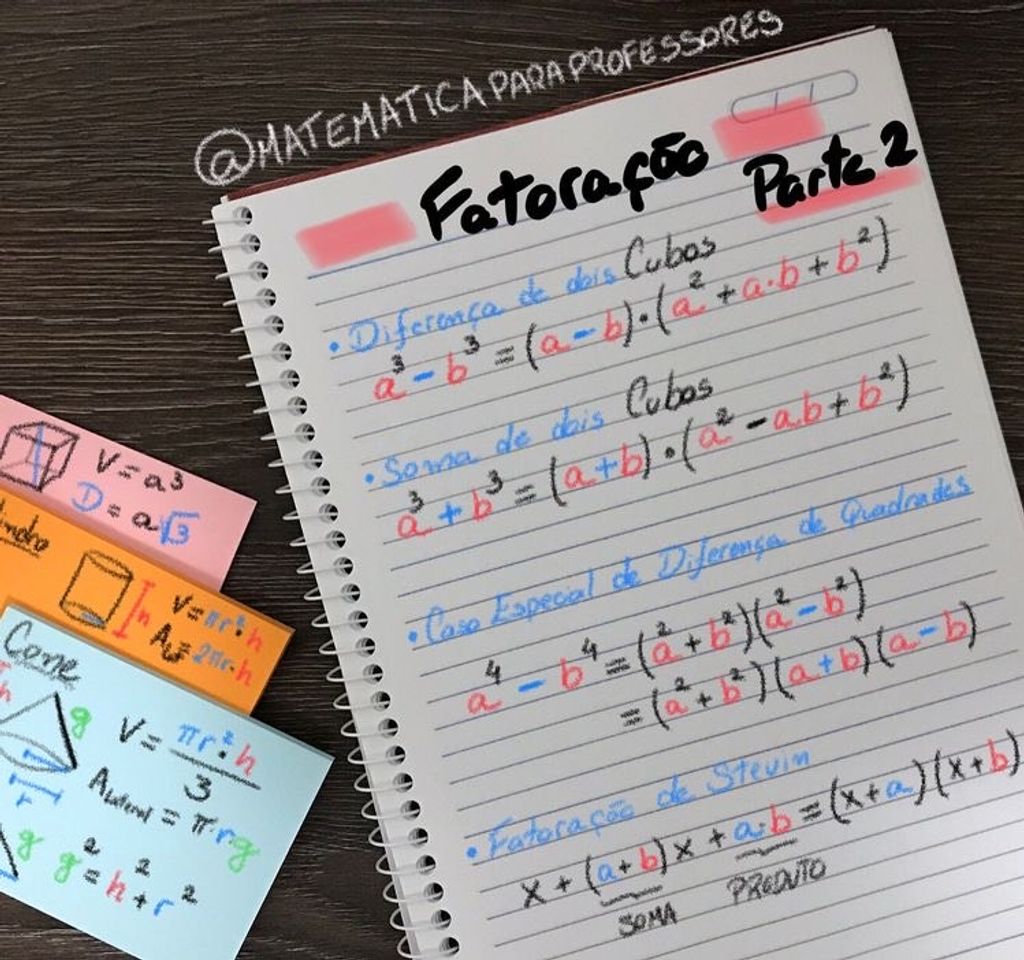 @MATEMATICAPARAPROFESSORES
Fatoração
Parte 2
• Diferença de dois Cubos
a³ - b³ = (a - b)·(a² + a·b + b²)
• Soma de dois Cubos
a³ + b³ = (a+b)·(a² - a.b + b²)
• Caso Especial de Diferença de Quadrados
a⁴ - b⁴ = (a² + b²)(a² - b²)
= (a² + b²)(a+b)(a-b)
• Fatoração de Stevin
x + (a+b)x + a·b = (x+a)(x+b)
SOMA PRODUTO
V = a³
D = a√3
h
V = πr²·h
2πr·h
Cone
h
g
V = πr²·h / 3
ALateral = π·r·g
r
g
g² = h² + r²